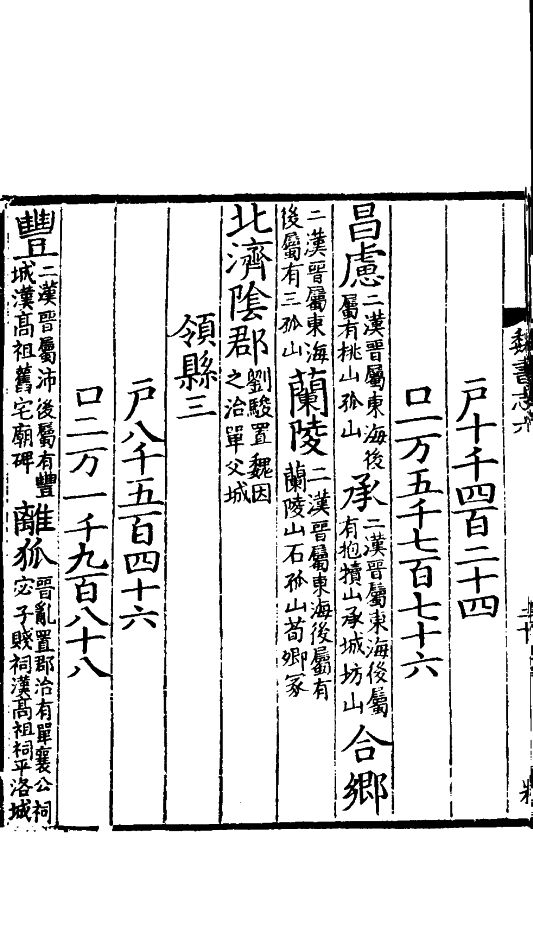 魏書志六
戸十千四百二十四
口一万五千七百七十六
昌慮二漢晉屬東海後屬有桃山孤山 承二漢晉屬東海後屬有抱犢山承城坊山 合鄉
二漢晉屬東海後屬有三孤山 蘭陵二漢晉屬東海後屬有蘭陵山石孤山荀卿冢
北濟陰郡劉駿置魏因之治單父城
領縣三
戸八千五百四十六
口二万一千九百八十八
豐二漢晉屬沛後屬有豐城漢髙祖舊宅廟碑 離狐晉亂置郡治有單襄公祠宓子賤祠漢髙祖祠平洛城